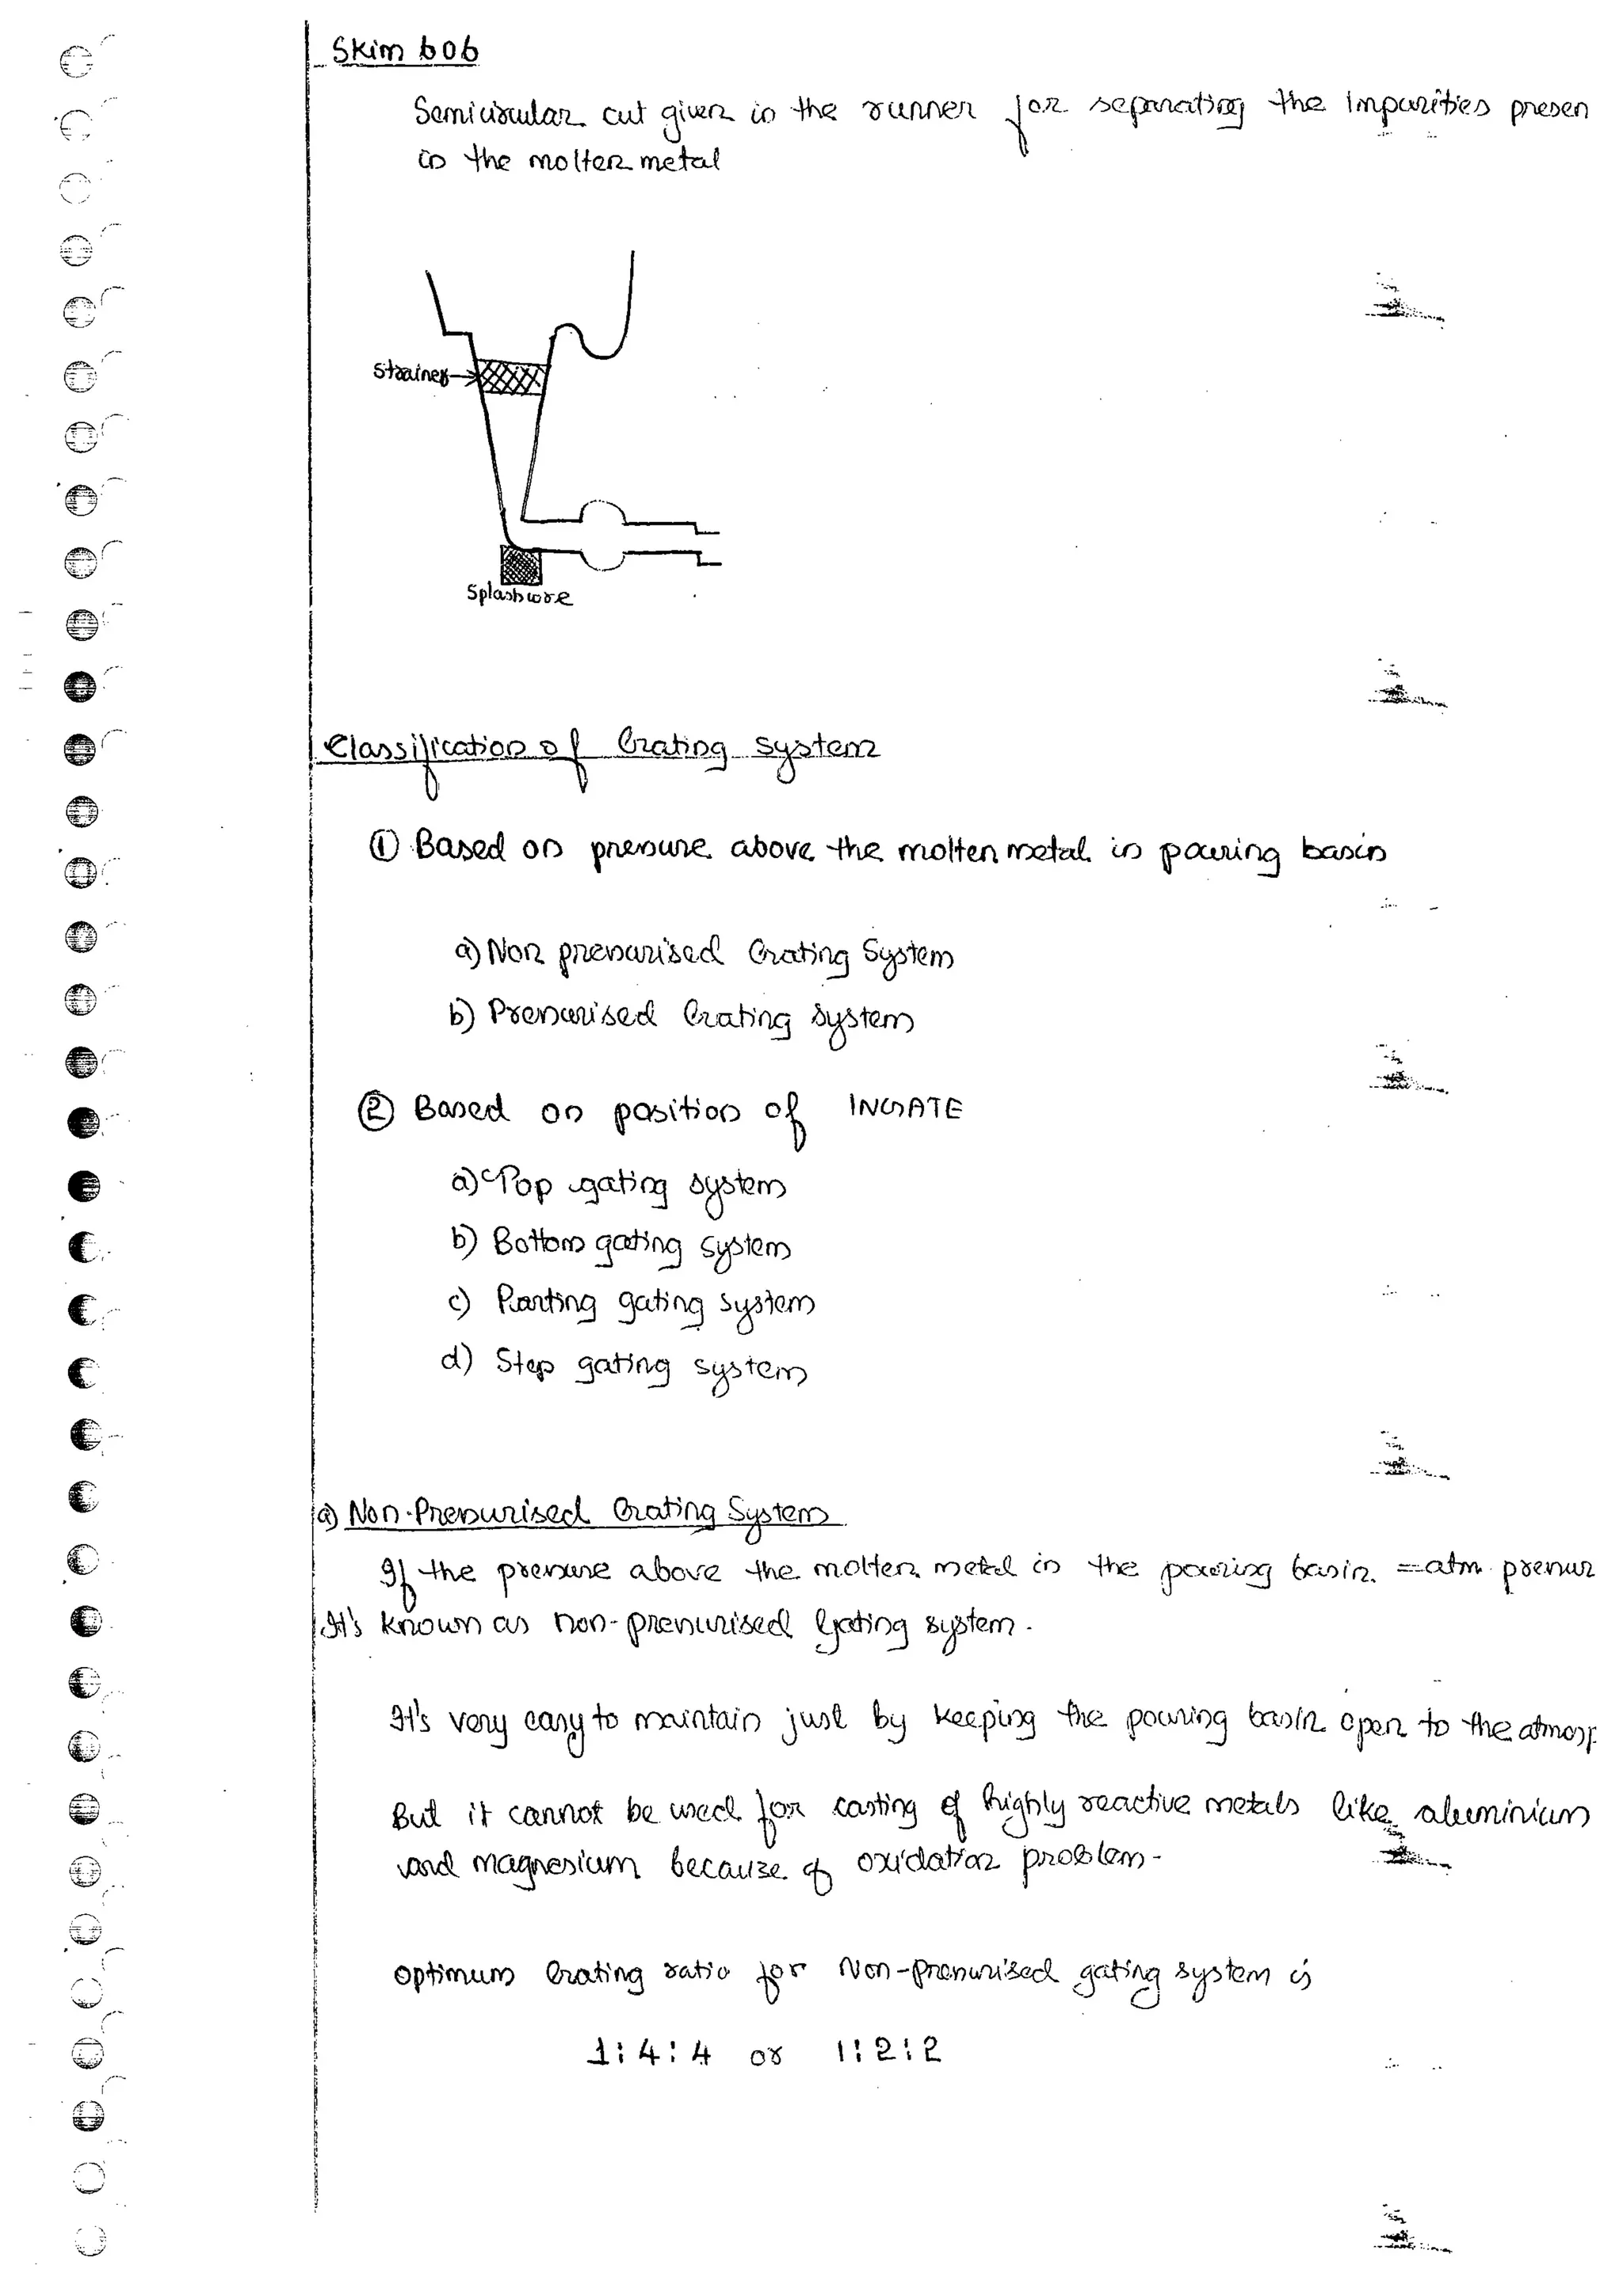 Skim bob
Semicircular cut given in the runner for separating the impurities presen
in the molten metal
Strainer
Splash core
Classification of Grating system
① Based on pressure above the molten metal in pouring basin
a) Non pressurised Grating System
b) Pressurised Grating system
② Based on position of INGATE
a) Top gating system
b) Bottom gating system
c) Parting gating system
d) Step gating system
a) Non-Pressurised Grating System
If the pressure above the molten metal in the pouring basin = atm. pressur
It's known as non-pressurised Gating system.
It's very easy to maintain just by keeping the pouring basin open to the atmosp
But it cannot be used for casting of highly reactive metals like aluminium
and magnesium because of oxidation problem-
Optimum Grating ratio for Non-pressurised gating system is
1:4:4 or 1:2:2